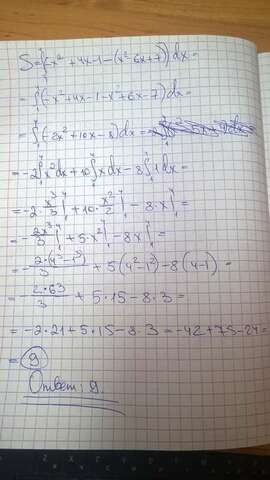 S=∫₁⁴(-x²+4x-1-(x²-6x+7))dx=
=∫₁⁴(-x²+4x-1-x²+6x-7)dx=
=∫₁⁴(-2x²+10x-8)dx=
=-2∫₁⁴x²dx+10∫₁⁴xdx-8∫₁⁴1dx=
=-2·x³/3|₁⁴+10·x²/2|₁⁴-8·x|₁⁴=
=-2x³/3|₁⁴+5·x²|₁⁴-8x|₁⁴=
=-2·(4³-1³)/3+5(4²-1²)-8(4-1)=
=-2·63/3+5·15-8·3=
=-2·21+5·15-8·3=-42+75-24=
=9
Ответ: 9.